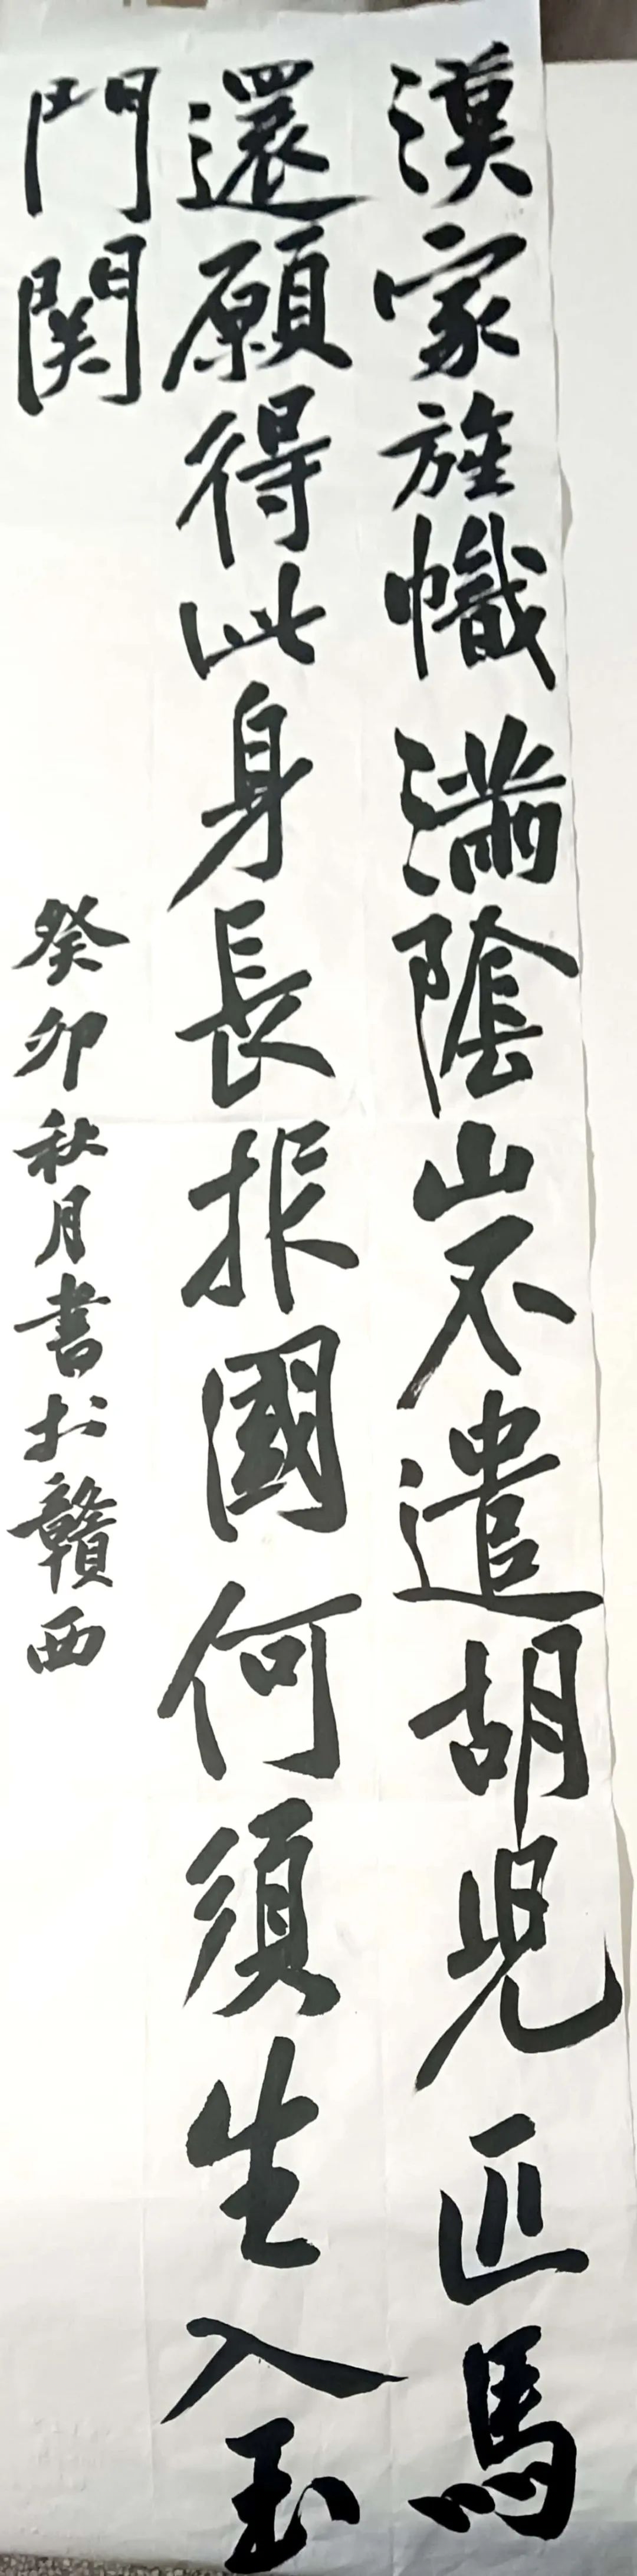 漢家旌幟滿陰山不遣胡児匹馬
還願得此身長報國何須生入玉
門関
癸卯秋月書於贛西